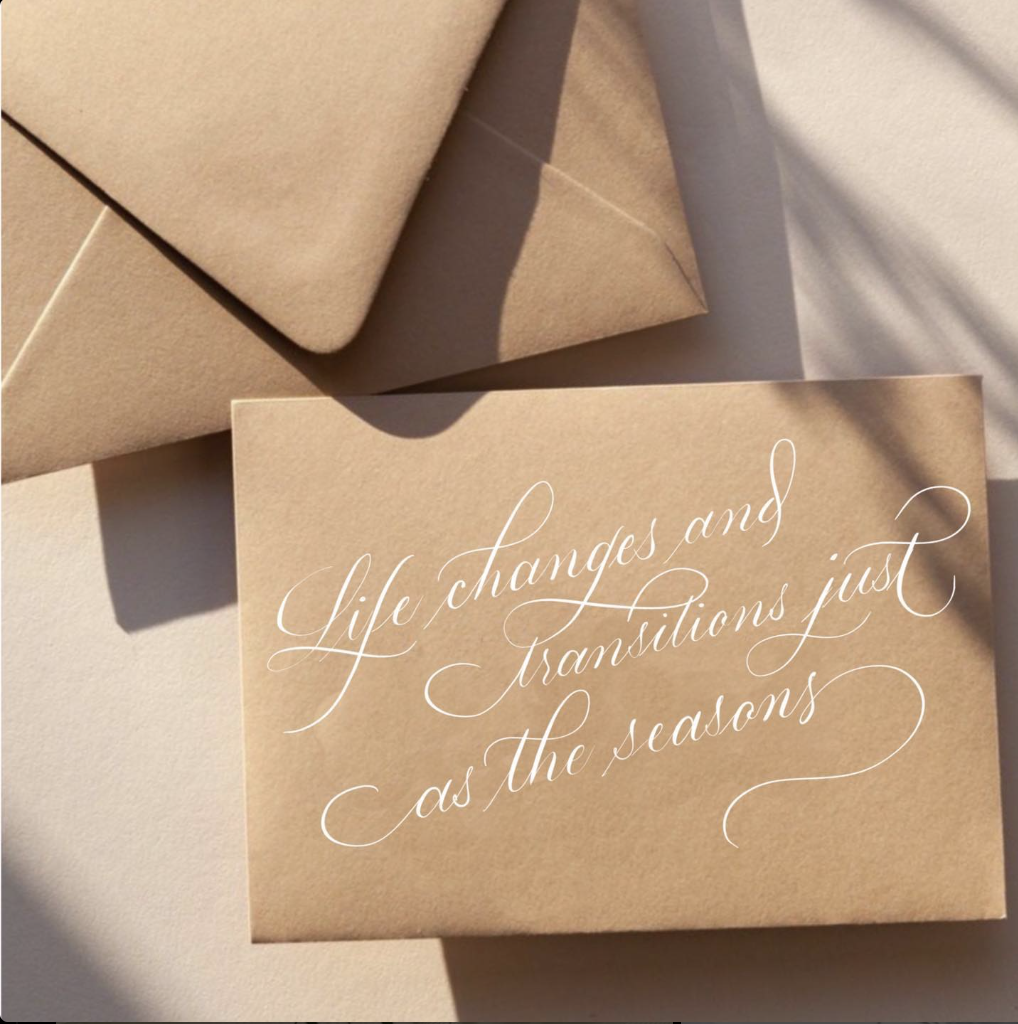 Life changes and
transitions just
as the seasons